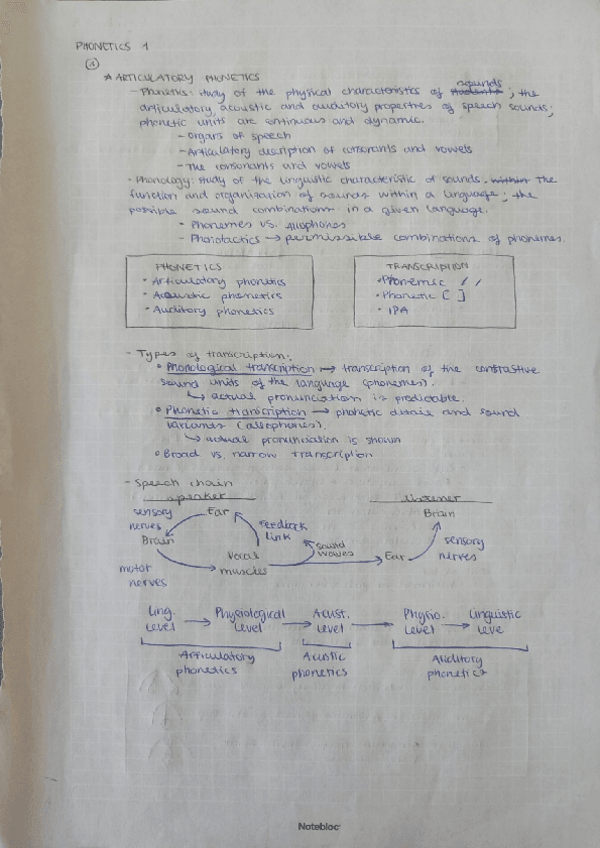 PHONETICS 1
1
ARTICULATORY PHONETICS
- Phonetics: study of the physical characteristics of sounds; the
articulatory, acoustic and auditory properties of speech sounds;
phonetic units are continuous and dynamic.
- Organs of speech
- Articulatory description of consonants and vowels
- The consonants and vowels
- Phonology: study of the linguistic characteristic of sounds. within The
function and organization of sounds within a language; the
possible sound combinations in a given language.
- Phonemes vs. allophones
- Phonotactics → permissible combinations of phonemes.
PHONETICS
• Articulatory phonetics
• Acoustic phonetics
• Auditory phonetics
TRANSCRIPTION
• Phonemic / /
• Phonetic [ ]
• IPA
- Types of transcription:
• Phonological transcription → transcription of the contrastive
sound units of the language (phonemes).
↳ actual pronunciation is predictable.
• Phonetic transcription → phonetic details and sound
variants (allophones).
↳ actual pronunciation is shown
• Broad vs. narrow transcription
- Speech chain
speaker
listener
sensory nerves
Ear
Brain
Brain
feedback link
sound waves
motor nerves
vocal muscles
Ear
sensory nerves
Ling. level → Physiological level → Acust. level → Physio. level → Linguistic leve
Articulatory phonetics
Acustic phonetics
Auditory phonetics
Notebloc